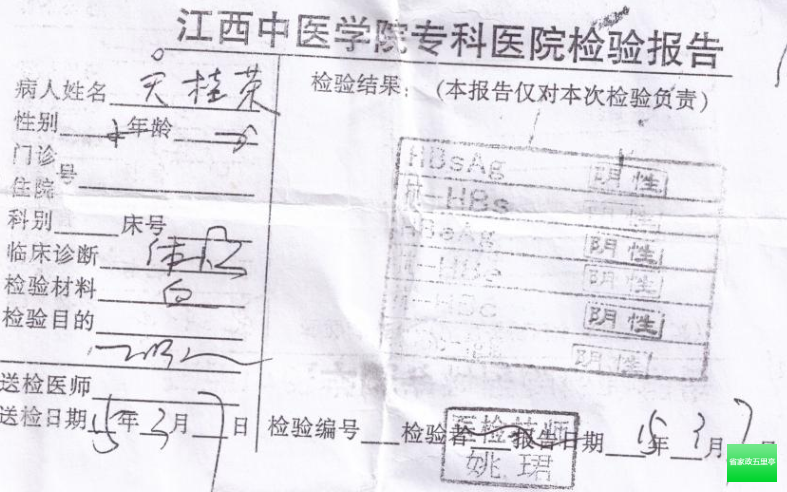 江西中医学院专科医院检验报告
病人姓名 桂荣
性别 年龄
门诊
住院 号
科别 床号
临床诊断 体检
检验材料
检验目的
送检医师
送检日期 15年3月7日
检验结果：（本报告仅对本次检验负责）
HBsAg 阴性
抗-HBs 阴性
HBeAg 阴性
抗-HBe 阴性
抗-HBc 阴性
阴性
检验编号 检验者 报告日期 15年3月7日
医检技师
姚珺
省家政五里亭